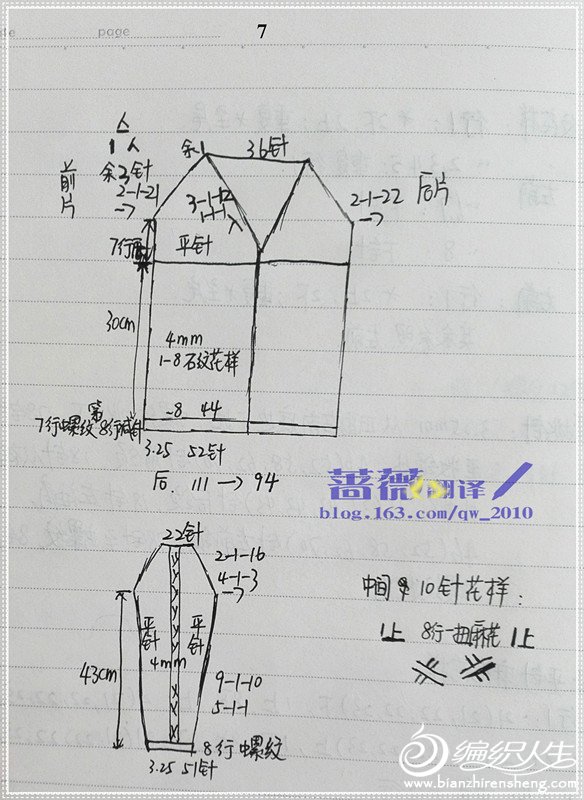 date
page
7
前片
余3针
2-1-21
余1
36针
3-1-12
1-1-1
2-1-22
后片
7行
平针
30cm
4mm
1-8石纹花样
-8 44
7行螺纹 第8行减针
3.25 52针
后. 111 → 94
蔷薇翻译
blog.163.com/qw_2010
22针
2-1-16
4-1-3
平针
平针
4mm
43cm
9-1-10
5-1-1
8行螺纹
3.25 51针
中间 10针花样:
1上 8行一扭麻花 1上
编织人生
www.bianzhirensheng.com